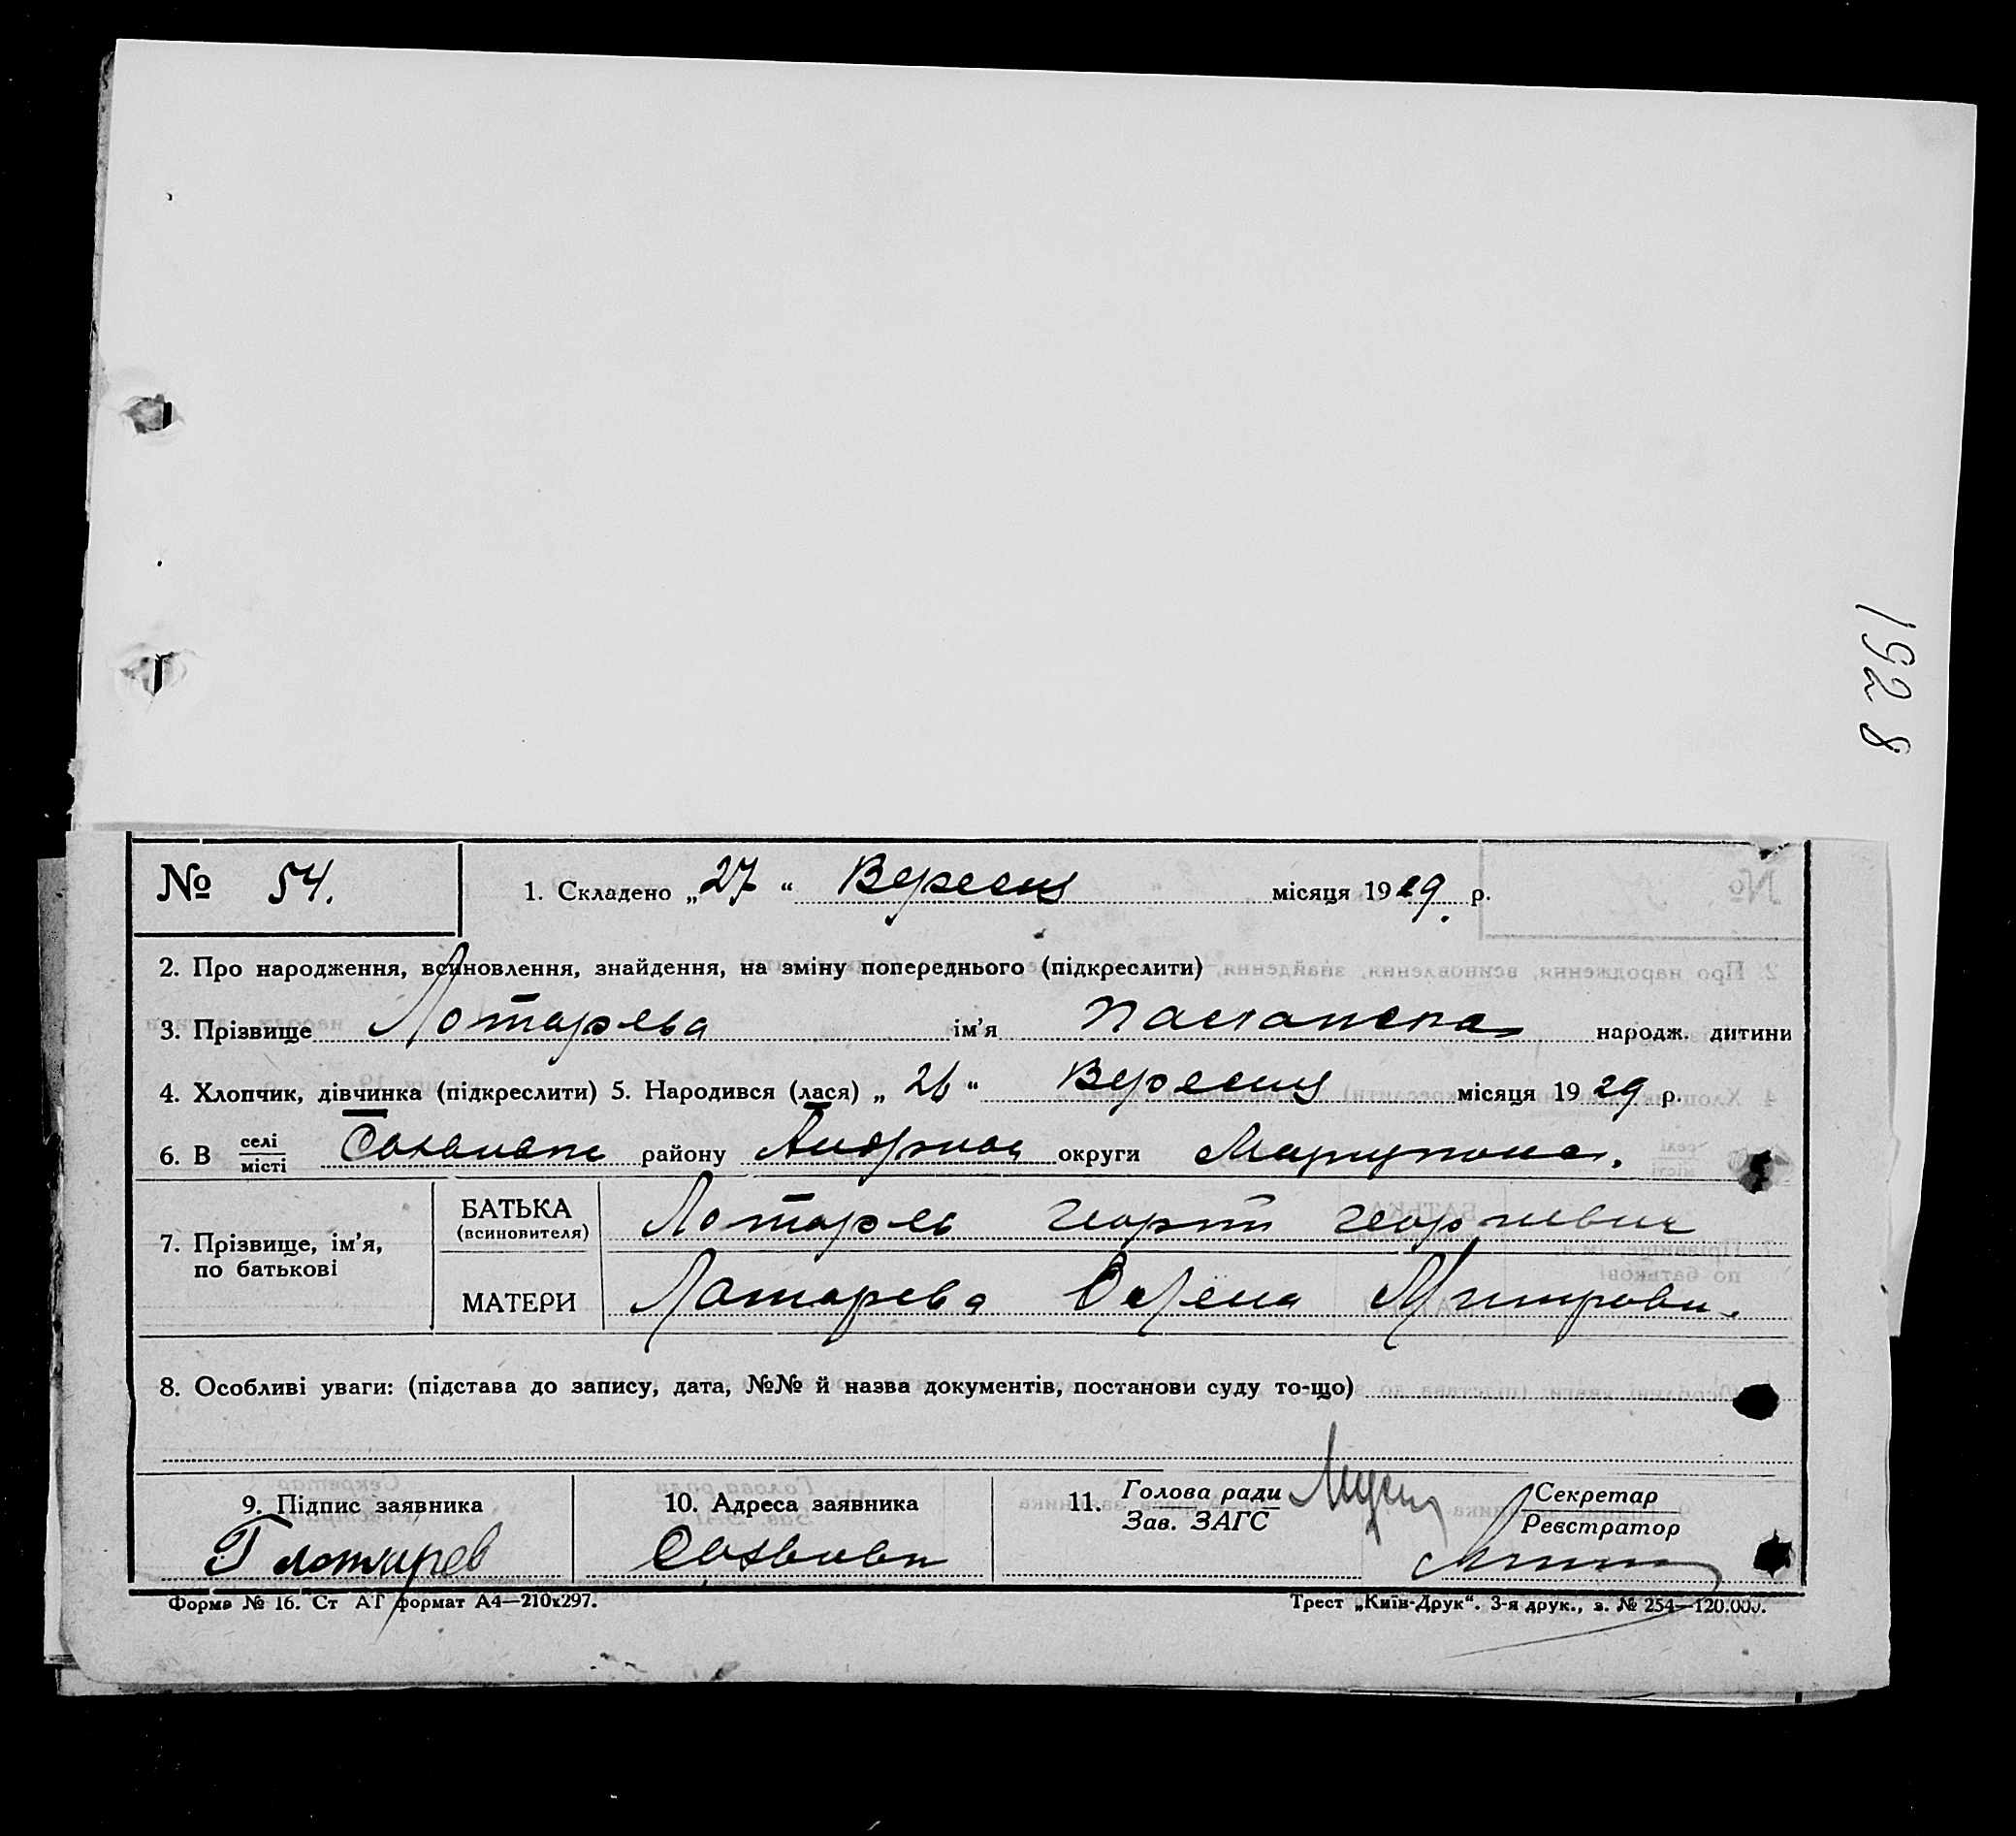 1928
№ 54. 1. Складено „27“ Вересня місяця 1929 р.
2. Про народження, всиновлення, знайдення, на зміну попереднього (підкреслити)
3. Прізвище Лотарева ім'я народж. дитини
4. Хлопчик, дівчинка (підкреслити) 5. Народився (лася) „26“ Вересня місяця 1929 р.
6. В селі місті району округи
7. Прізвище, ім'я, по батькові
БАТЬКА (всиновителя) Лотарев Георгій Георгиевич
МАТЕРИ Лотарева Олена
8. Особливі уваги: (підстава до запису, дата, №№ й назва документів, постанови суду то-що)
9. Підпис заявника 10. Адреса заявника 11. Голова ради Зав. ЗАГС Секретар Реєстратор
Г Лотарев
Форма № 16. Ст АТ формат А4—210х297. Трест „Київ-Друк“. 3-я друк., з. № 254—120.000.